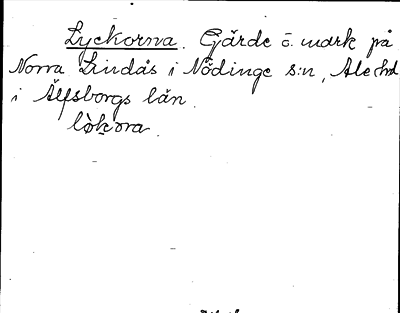 Lyckorna. Gärde o. mark på
Norra Lindås i Nödinge s:n, Ale hd
i Älfsborgs län.